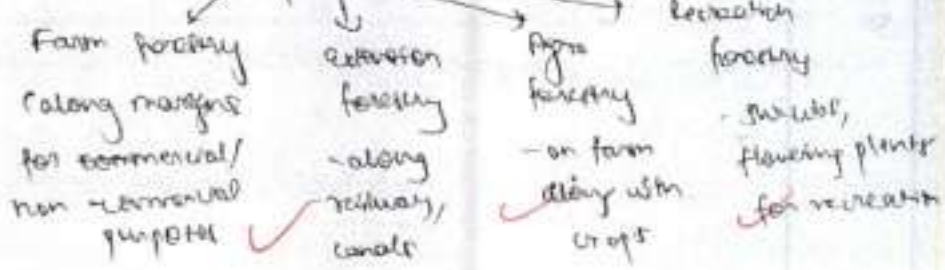 Farm forestry
(along margins
for commercial/
non commercial
purposes
extension
forestry
-along
railway,
canals
Agro
forestry
-on farm
along with
crops
Recreation
forestry
- shrubs,
flowering plants
for recreation